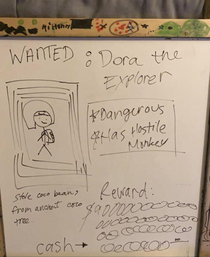 WANTED : Dora the
Explorer
*Dangerous
*Has Hostile
Monkey
stole coco beans
from ancient coco
tree
Reward:
cash→